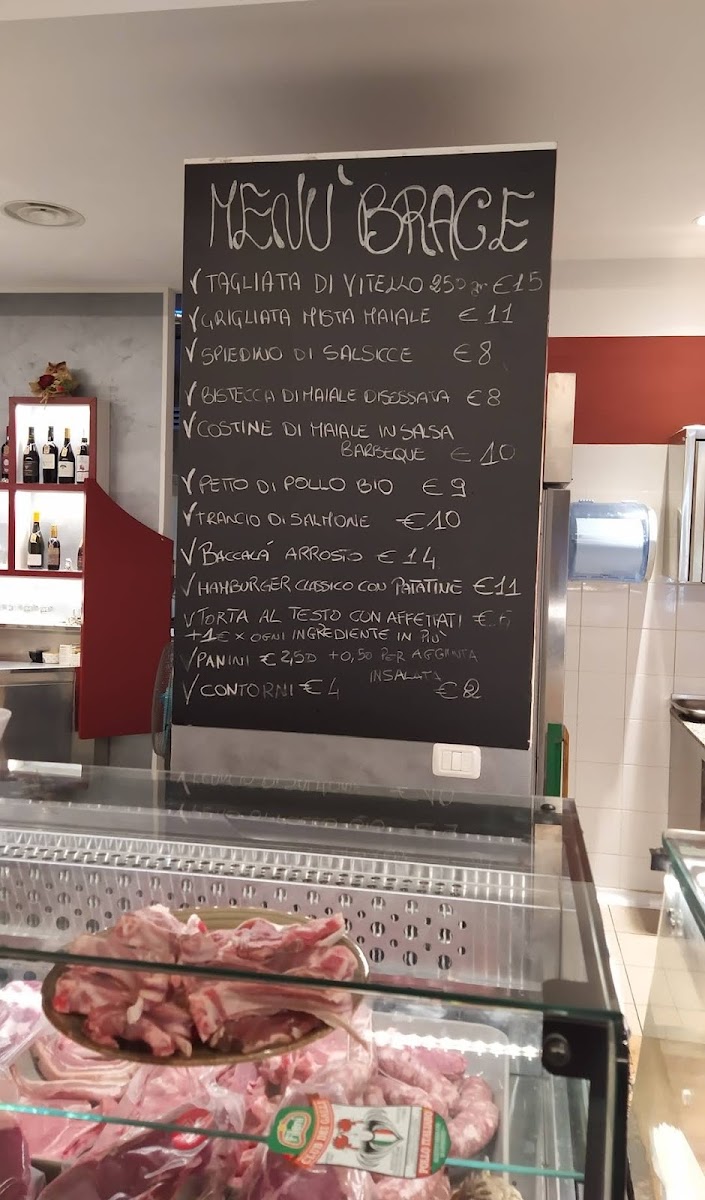 MENU' BRACE
✓ TAGLIATA DI VITELLO 250 gr €15
✓ GRIGLIATA MISTA MAIALE €11
✓ SPIEDINO DI SALSICCE €8
✓ BISTECCA DI MAIALE DISOSSATA €8
✓ COSTINE DI MAIALE IN SALSA
BARBEQUE €10
✓ PETTO DI POLLO BIO €9
✓ TRANCIO DI SALMONE €10
✓ BACCALA' ARROSTO €14
✓ HAMBURGER CLASSICO CON PATATINE €11
✓ TORTA AL TESTO CON AFFETTATI
+1€ x OGNI INGREDIENTE IN PIU'
✓ PANINI €2,50 +0,50 PER AGGIUNTA
INSALATA
✓ CONTORNI €4 €2
POLLO ITALIANO